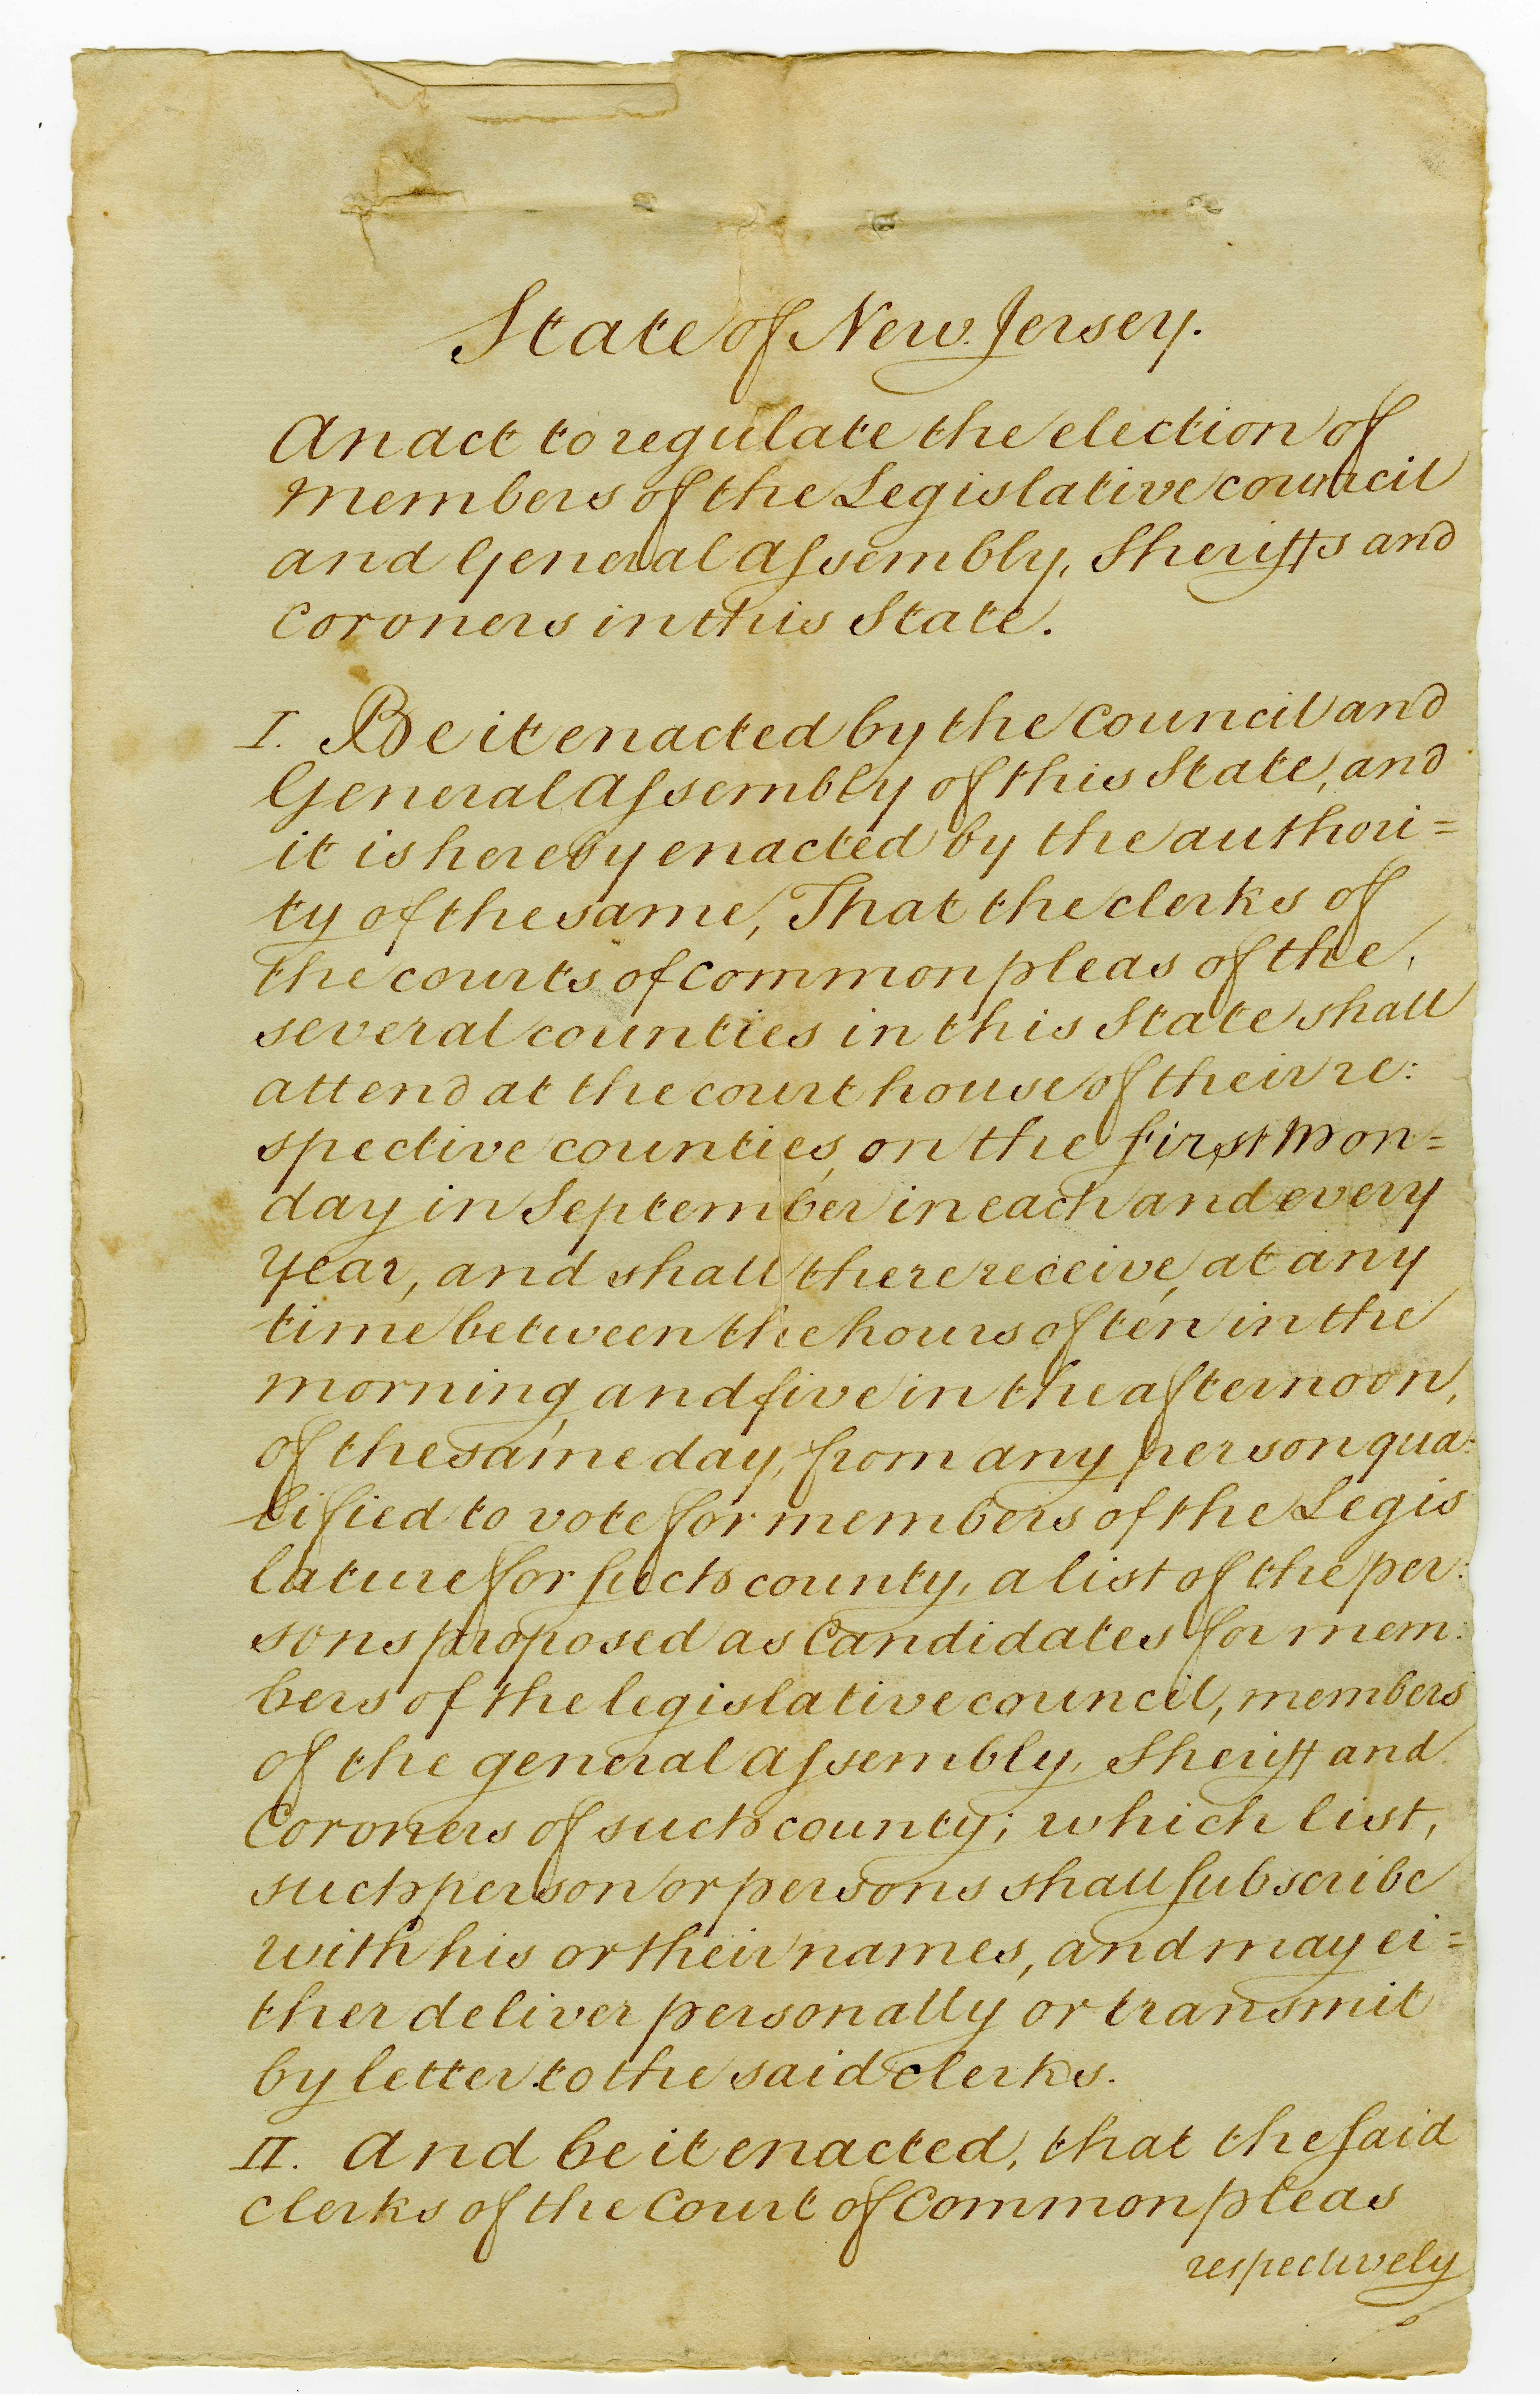 State of New Jersey.
An act to regulate the election of
members of the Legislative council
and General Assembly, Sheriffs and
Coroners in this State.
I. Be it enacted by the Council and
General Assembly of this State, and
it is hereby enacted by the authori=
ty of the same, That the clerks of
the courts of common pleas of the,
several counties in this State shall
attend at the court house of their re:
spective counties, on the first Mon=
day in September in each and every
year, and shall there receive, at any
time between the hours of ten in the
morning and five in the afternoon,
of the same day, from any person qua:
lified to vote for members of the Legis
lature for such county, a list of the per:
sons proposed as Candidates for mem:
bers of the legislative council, members
of the general Assembly, Sheriff and
Coroners of such county; which list,
such person or persons shall subscribe
with his or their names, and may ei=
ther deliver personally or transmit
by letter to the said clerks.
II. And be it enacted, that the said
clerks of the Court of Common pleas
respectively